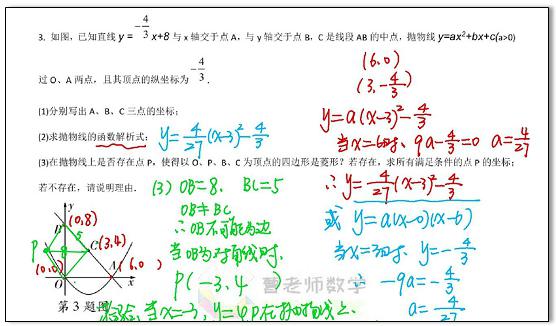 3. 如图，已知直线 y = -4/3 x+8 与 x 轴交于点 A，与 y 轴交于点 B，C 是线段 AB 的中点，抛物线 y=ax²+bx+c(a>0)
过 O、A 两点，且其顶点的纵坐标为 -4/3 .
(6,0)
(3,-4/3)
(1)分别写出 A、B、C 三点的坐标；
y=a(x-3)²-4/3
(2)求抛物线的函数解析式；
y=4/27(x-3)²-4/3
当x=6时, 9a-4/3=0 a=4/27
(3)在抛物线上是否存在点 P，使得以 O、P、B、C 为顶点的四边形是菱形？若存在，求所有满足条件的点 P 的坐标；
若不存在，请说明理由.
∴y=4/27(x-3)²-4/3
(3) OB=8, BC=5
OB≠BC
∴OB不可能为边
当OB为对角线时,
P(-3,4)
检验:当x=-3, y=4, P在抛物线上.
或 y=a(x-0)(x-6)
当x=3时, y=-4/3
∴ -9a=-4/3
a=4/27
y
(0,8)
B
5
P
C(3,4)
(0,0)
A(6,0)
x
第 3 题图
曹老师数学